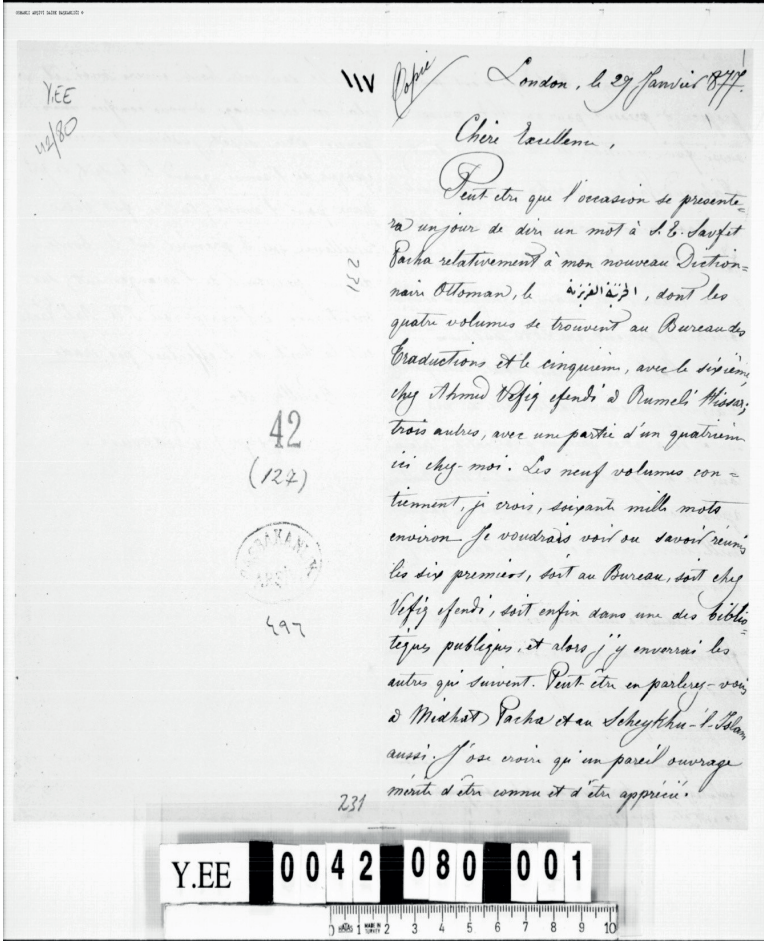 OSMANLI ARŞİVİ DAİRE BAŞKANLIĞI
Y.EE
42/80
١١٧
Copie
London, le 29 Janvier 1877.
Chère Excellence,
Peut etre que l'occasion se presente=
ra un jour de dire un mot à S. E. Savfet
Pacha relativement à mon nouveau Diction=
naire Ottoman, le , dont les
quatre volumes se trouvent au Bureau des
Traductions et le cinquième, avec le sixième,
chez Ahmed Vefiq efendi à Rumeli Hissar;
trois autres, avec une partie d'un quatrième
ici chez-moi. Les neuf volumes con=
tiennent, je crois, soixante mille mots
environ. Je voudrais voir ou savoir réunis
les six premiers, soit au Bureau, soit chez
Vefiq efendi, soit enfin dans une des biblio=
tèques publiques, et alors j'y enverrai les
autres qui suivent. Peut-être en parlerez-vous
à Midhat Pacha et au Scheykhu-'l-Islam
aussi. J'ose croire qu'un pareil ouvrage
mérite d'être connu et d'être apprécié.
231
42
(127)
BAŞBAKANLIK
ARŞİVİ
٤٩٦
231
Y.EE 0042 080 001
0 1 MADE IN TURKEY 2 3 4 5 6 7 8 9 10